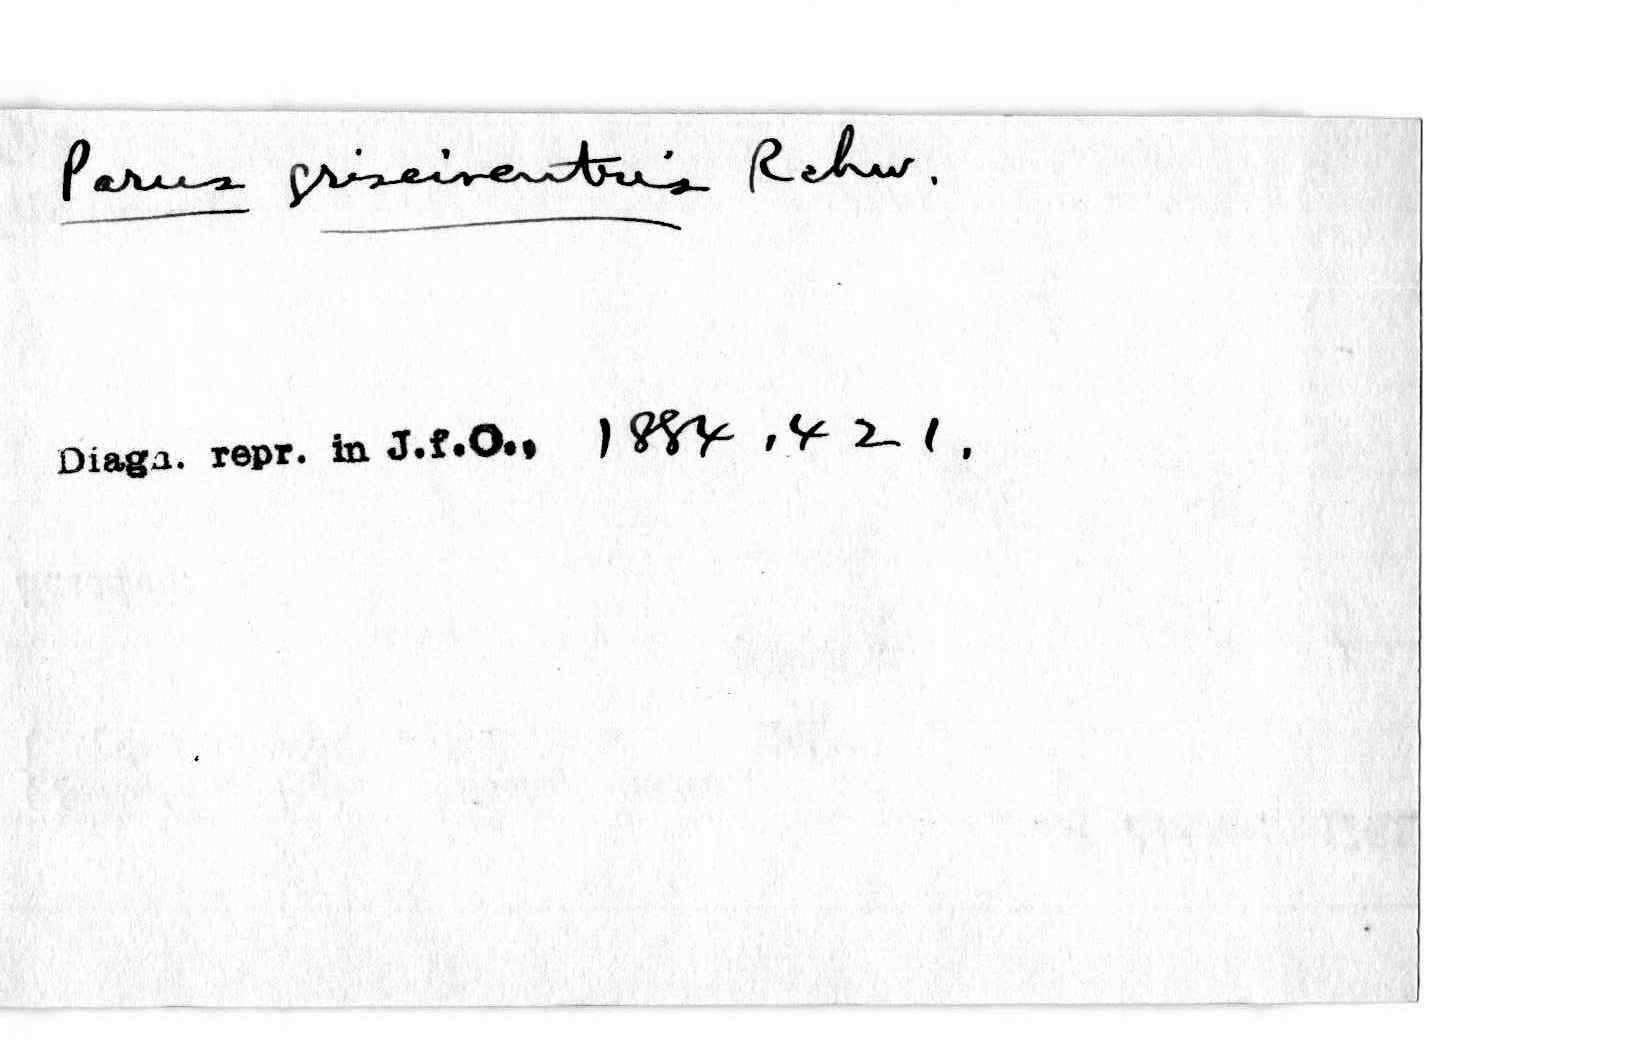 Parus griseiventris Rchw.
Diagn. repr. in J.f.O., 1884, 421.